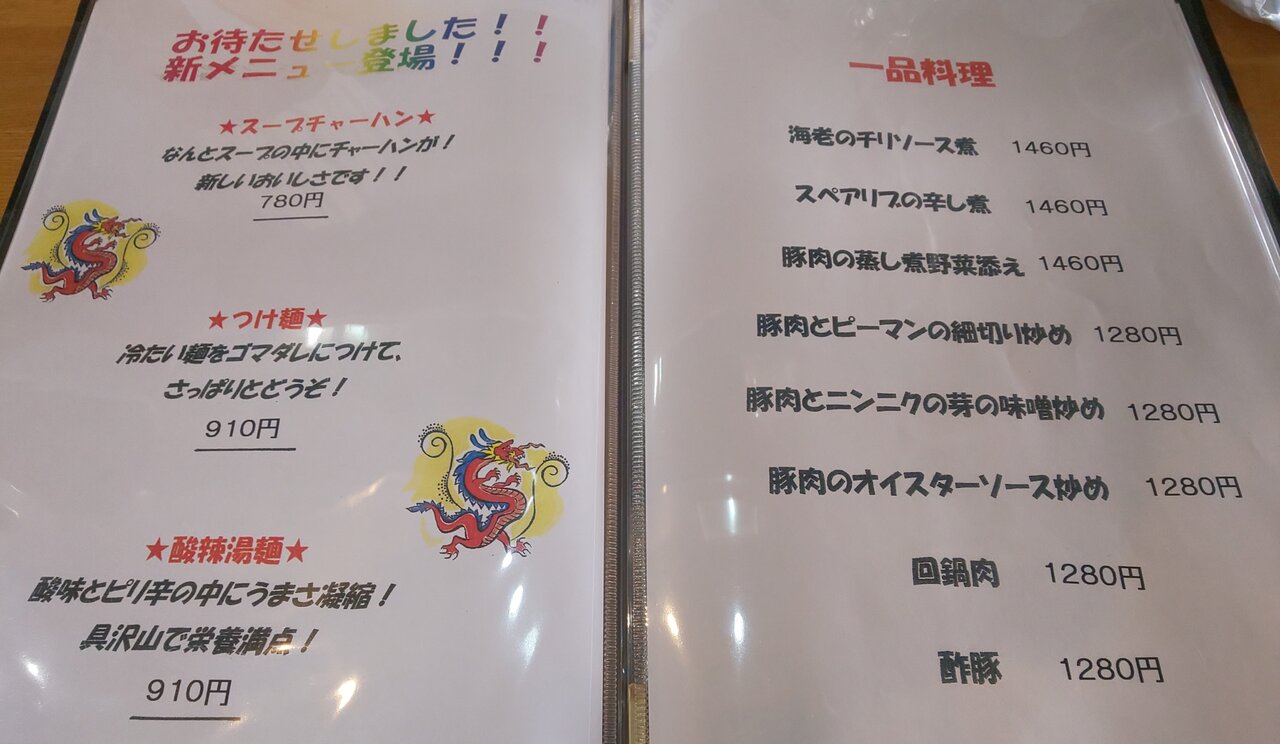 お待たせしました！！
新メニュー登場！！！
★スープチャーハン★
なんとスープの中にチャーハンが！
新しいおいしさです！！
780円
★つけ麺★
冷たい麺をゴマダレにつけて、
さっぱりとどうぞ！
910円
★酸辣湯麺★
酸味とピリ辛の中にうまさ凝縮！
具沢山で栄養満点！
910円
一品料理
海老のチリソース煮 1460円
スペアリブの辛し煮 1460円
豚肉の蒸し煮野菜添え 1460円
豚肉とピーマンの細切り炒め 1280円
豚肉とニンニクの芽の味噌炒め 1280円
豚肉のオイスターソース炒め 1280円
回鍋肉 1280円
酢豚 1280円